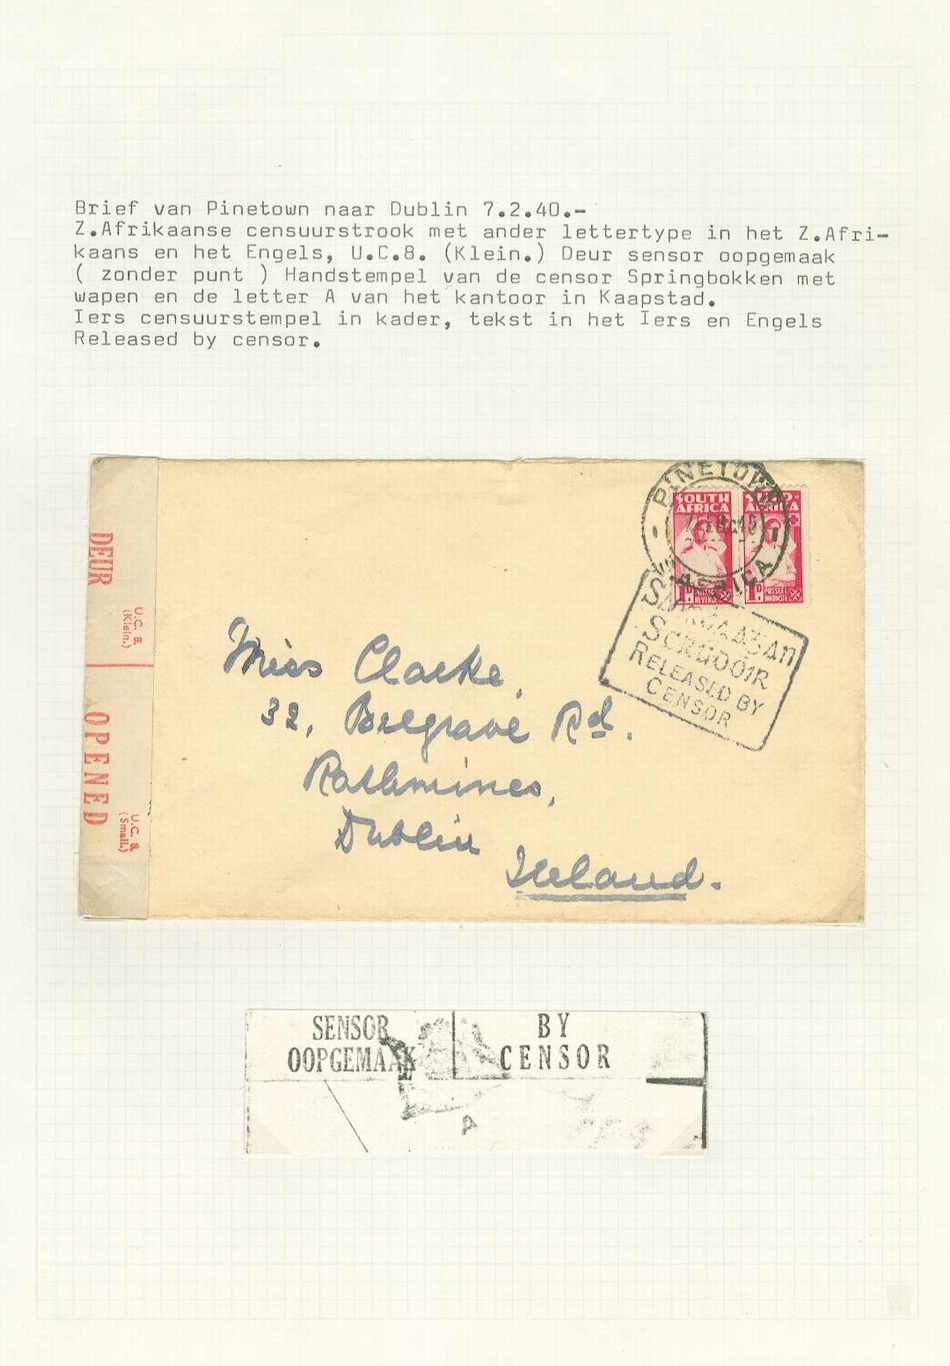 Brief van Pinetown naar Dublin 7.2.40.-
Z.Afrikaanse censuurstrook met ander lettertype in het Z.Afri-
kaans en het Engels, U.C.8. (Klein.) Deur sensor oopgemaak
( zonder punt ) Handstempel van de censor Springbokken met
wapen en de letter A van het kantoor in Kaapstad.
Iers censuurstempel in kader, tekst in het Iers en Engels
Released by censor.
PINETOWN
AFRICA
SOUTH
AFRICA
1D
SCRÚDÓIR
RELEASED BY
CENSOR
DEUR
U.C. 8.
(Klein.)
OPENED
U.C. 8.
(Small.)
Miss Clarke,
32, Belgrave Rd.
Rathmines,
Dublin
Ireland.
SENSOR
OOPGEMAAK
BY
CENSOR
A